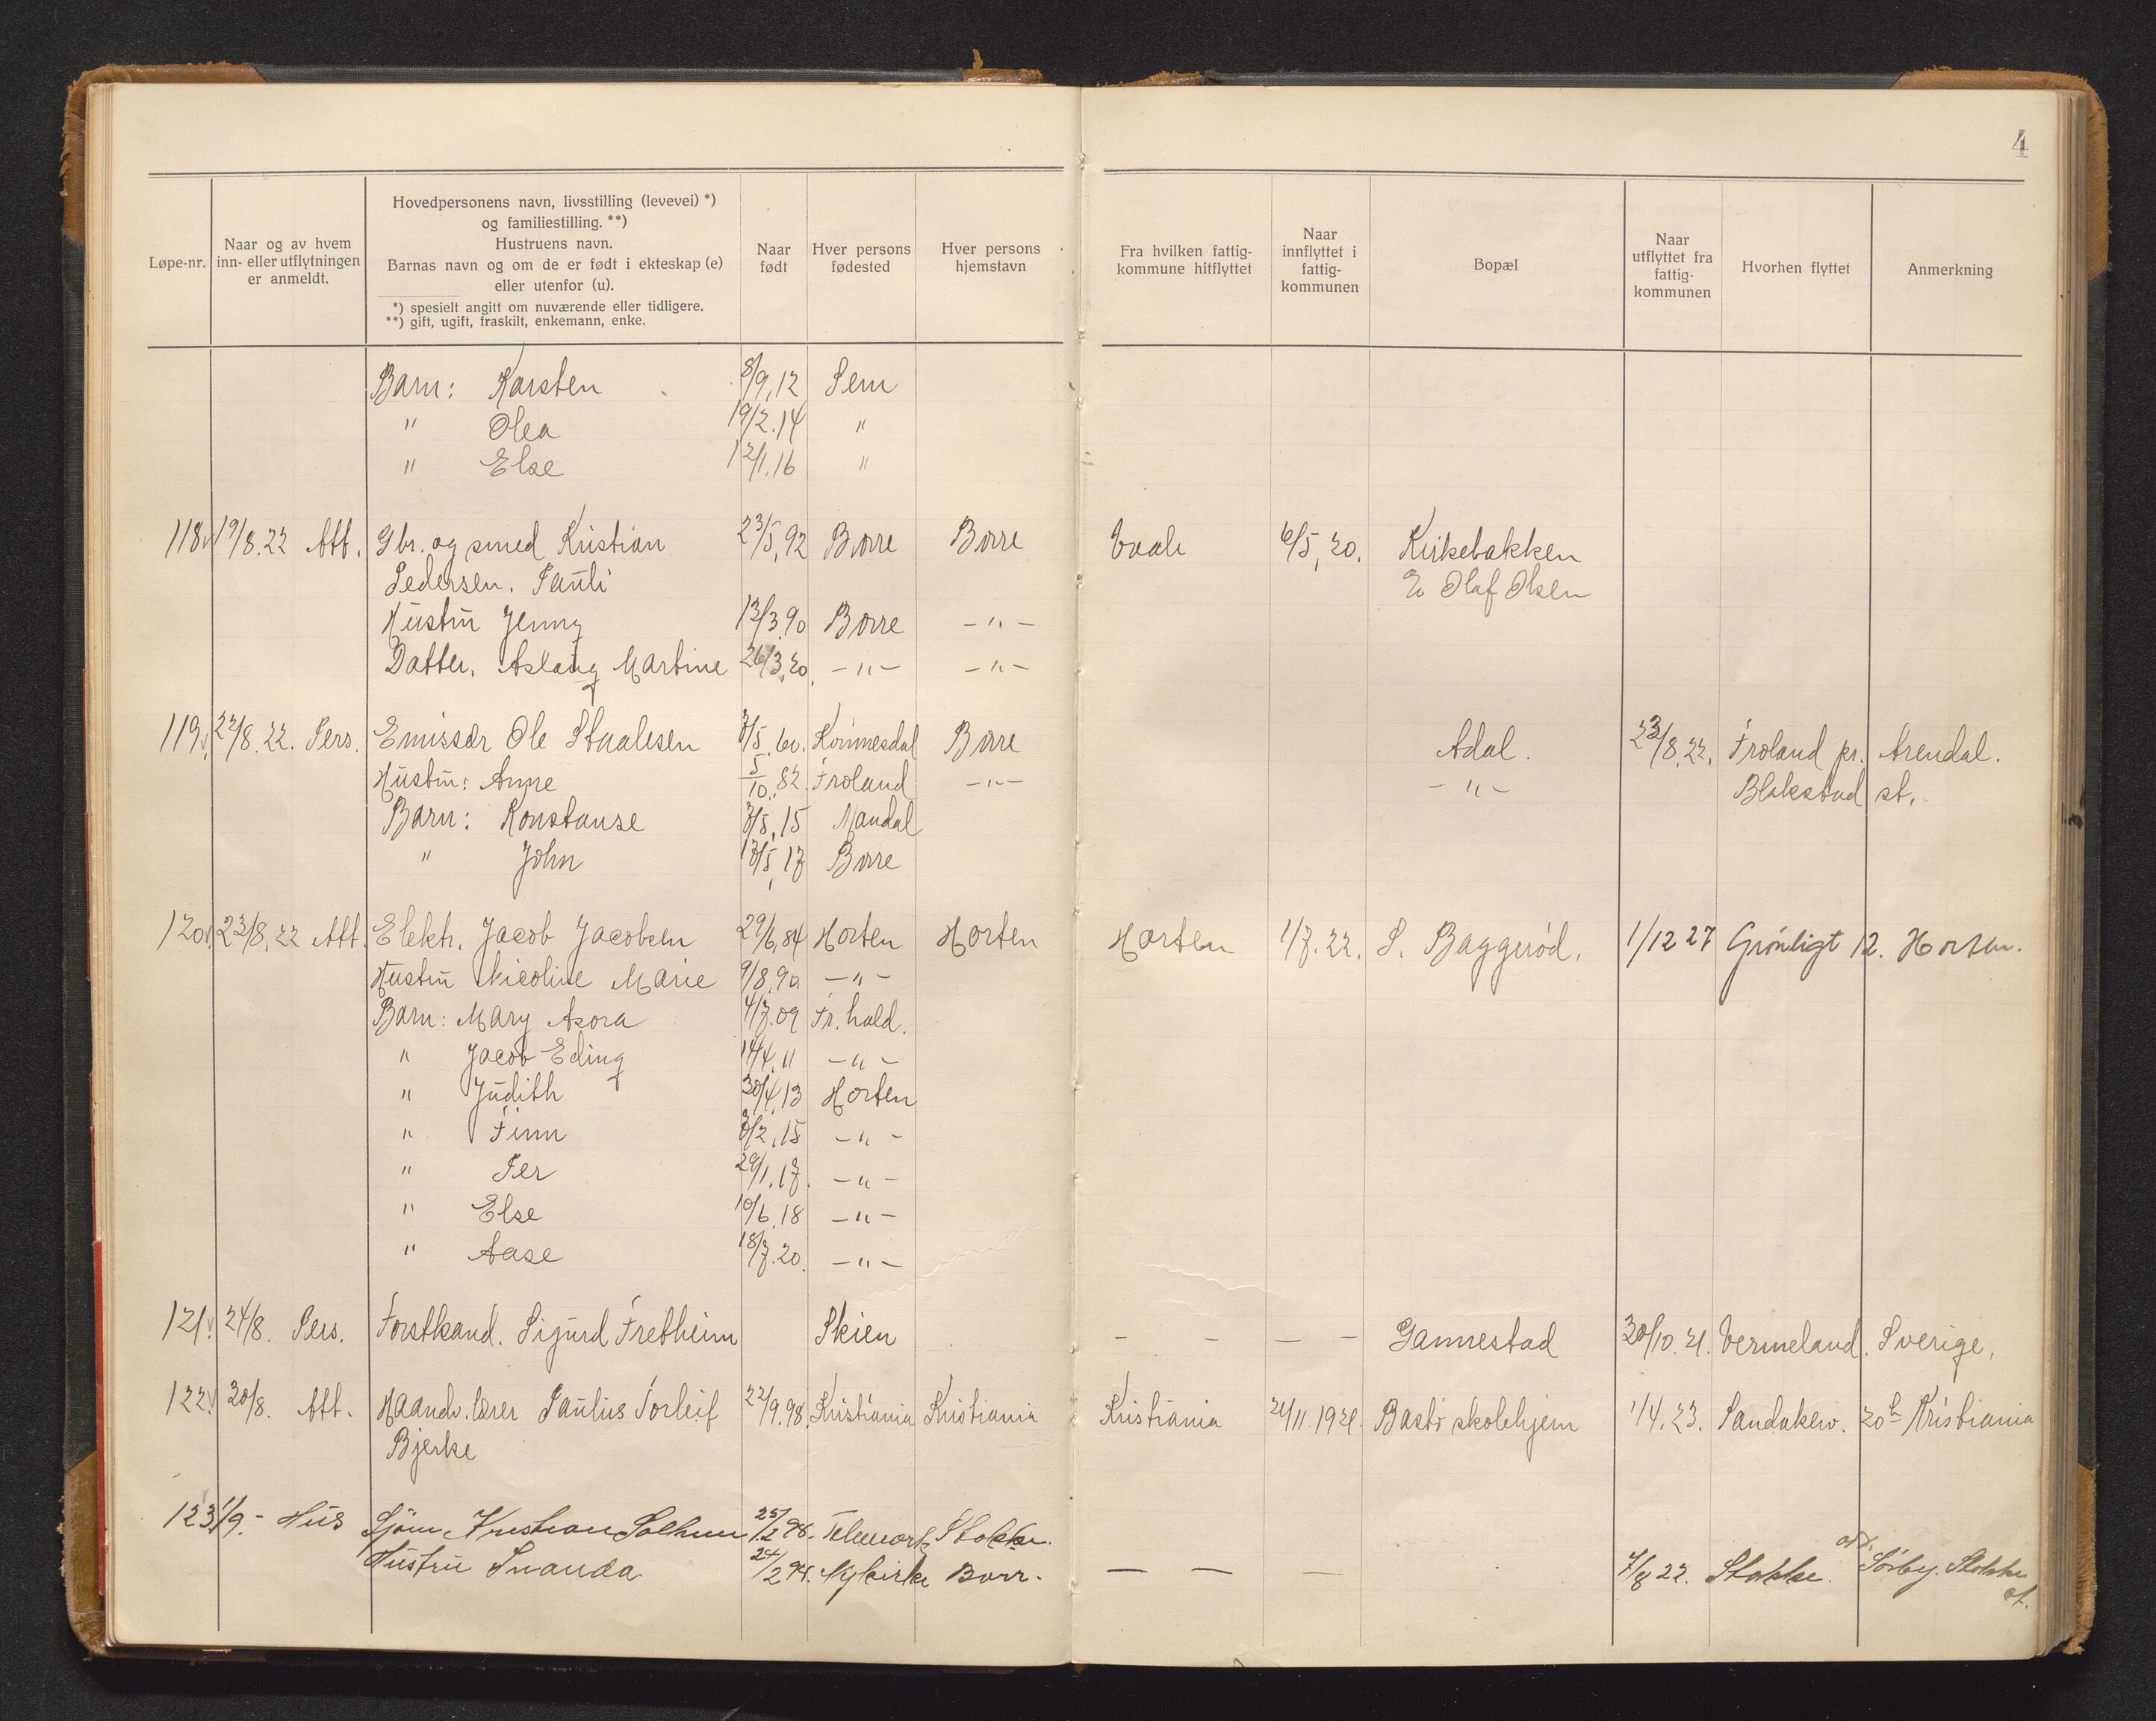 4
Løpe-nr.
Naar og av hvem
inn- eller utflytningen
er anmeldt.
Hovedpersonens navn, livsstilling (levevei) *)
og familiestilling. **)
Hustruens navn.
Barnas navn og om de er født i ekteskap (e)
eller utenfor (u).
*) spesielt angitt om nuværende eller tidligere.
**) gift, ugift, fraskilt, enkemann, enke.
Naar
født
Hver persons
fødested
Hver persons
hjemstavn
Fra hvilken fattig-
kommune hitflyttet
Naar
innflyttet i
fattig-
kommunen
Bopæl
Naar
utflyttet fra
fattig-
kommunen
Hvorhen flyttet
Anmerkning
Barn: Karsten 8/9,12 Sem
" Olea 19/2.14 "
" Else 12/1.16 "
118 19/8.22 Att. Gbr. og smed Kristian 23/5,92 Borre Borre Vaale 6/5,20. Kirkebakken
Pedersen. Pauli E. Olaf Olsen
Hustru Jenny 13/3.90 Borre -"-
Datter. Aslaug Martine 26/3,20. -"- -"-
119 22/8.22. Pers. Emissær Ole Staalesen 3/5.60. Borre Adal. 23/8.22. Froland pr. Arendal.
Hustru: Anne 5/10.82. Froland -"- -"- Blakstad st.
Barn: Konstanse 3/5,15 Mandal
" John 17/5,17 Borre
120 23/8.22 Att. Elektr. Jacob Jacobsen 29/6,84 Horten Horten Horten 1/7.22. S. Baggerød. 1/12 27 Grönligt 12. Horten.
Hustru Nicoline Marie 9/8.90. -"-
Barn: Mary Asora 4/7.09 Fr.hald.
" Jacob Eding 14/4.11 -"-
" Judith 30/4,13 Horten
" Finn 3/2,15 -"-
" Per 29/1.17. -"-
" Else 10/6.18 -"-
" Aase 18/7.20. -"-
121. 24/8. Pers. Forstkand. Sigurd Fretheim Skien - - - - Gannestad 30/10.21. Vermeland. Sverige.
122. 30/8. Att. Haandv.lærer Paulus Torleif 22/9.98. Kristiania Kristiania Kristiania 21/11.1921. Bastö skolehjem 1/4.23. Sandakerv. 20b Kristiania
Bjerke
123 1/9.- Hus Sjöm. Kristian Solhum 25/2 96. Telemark Stokke.
Hustru 24/2 94. Nykirke Borr. - - - 7/8 22. Stokke. Sörby. Stokke
st.